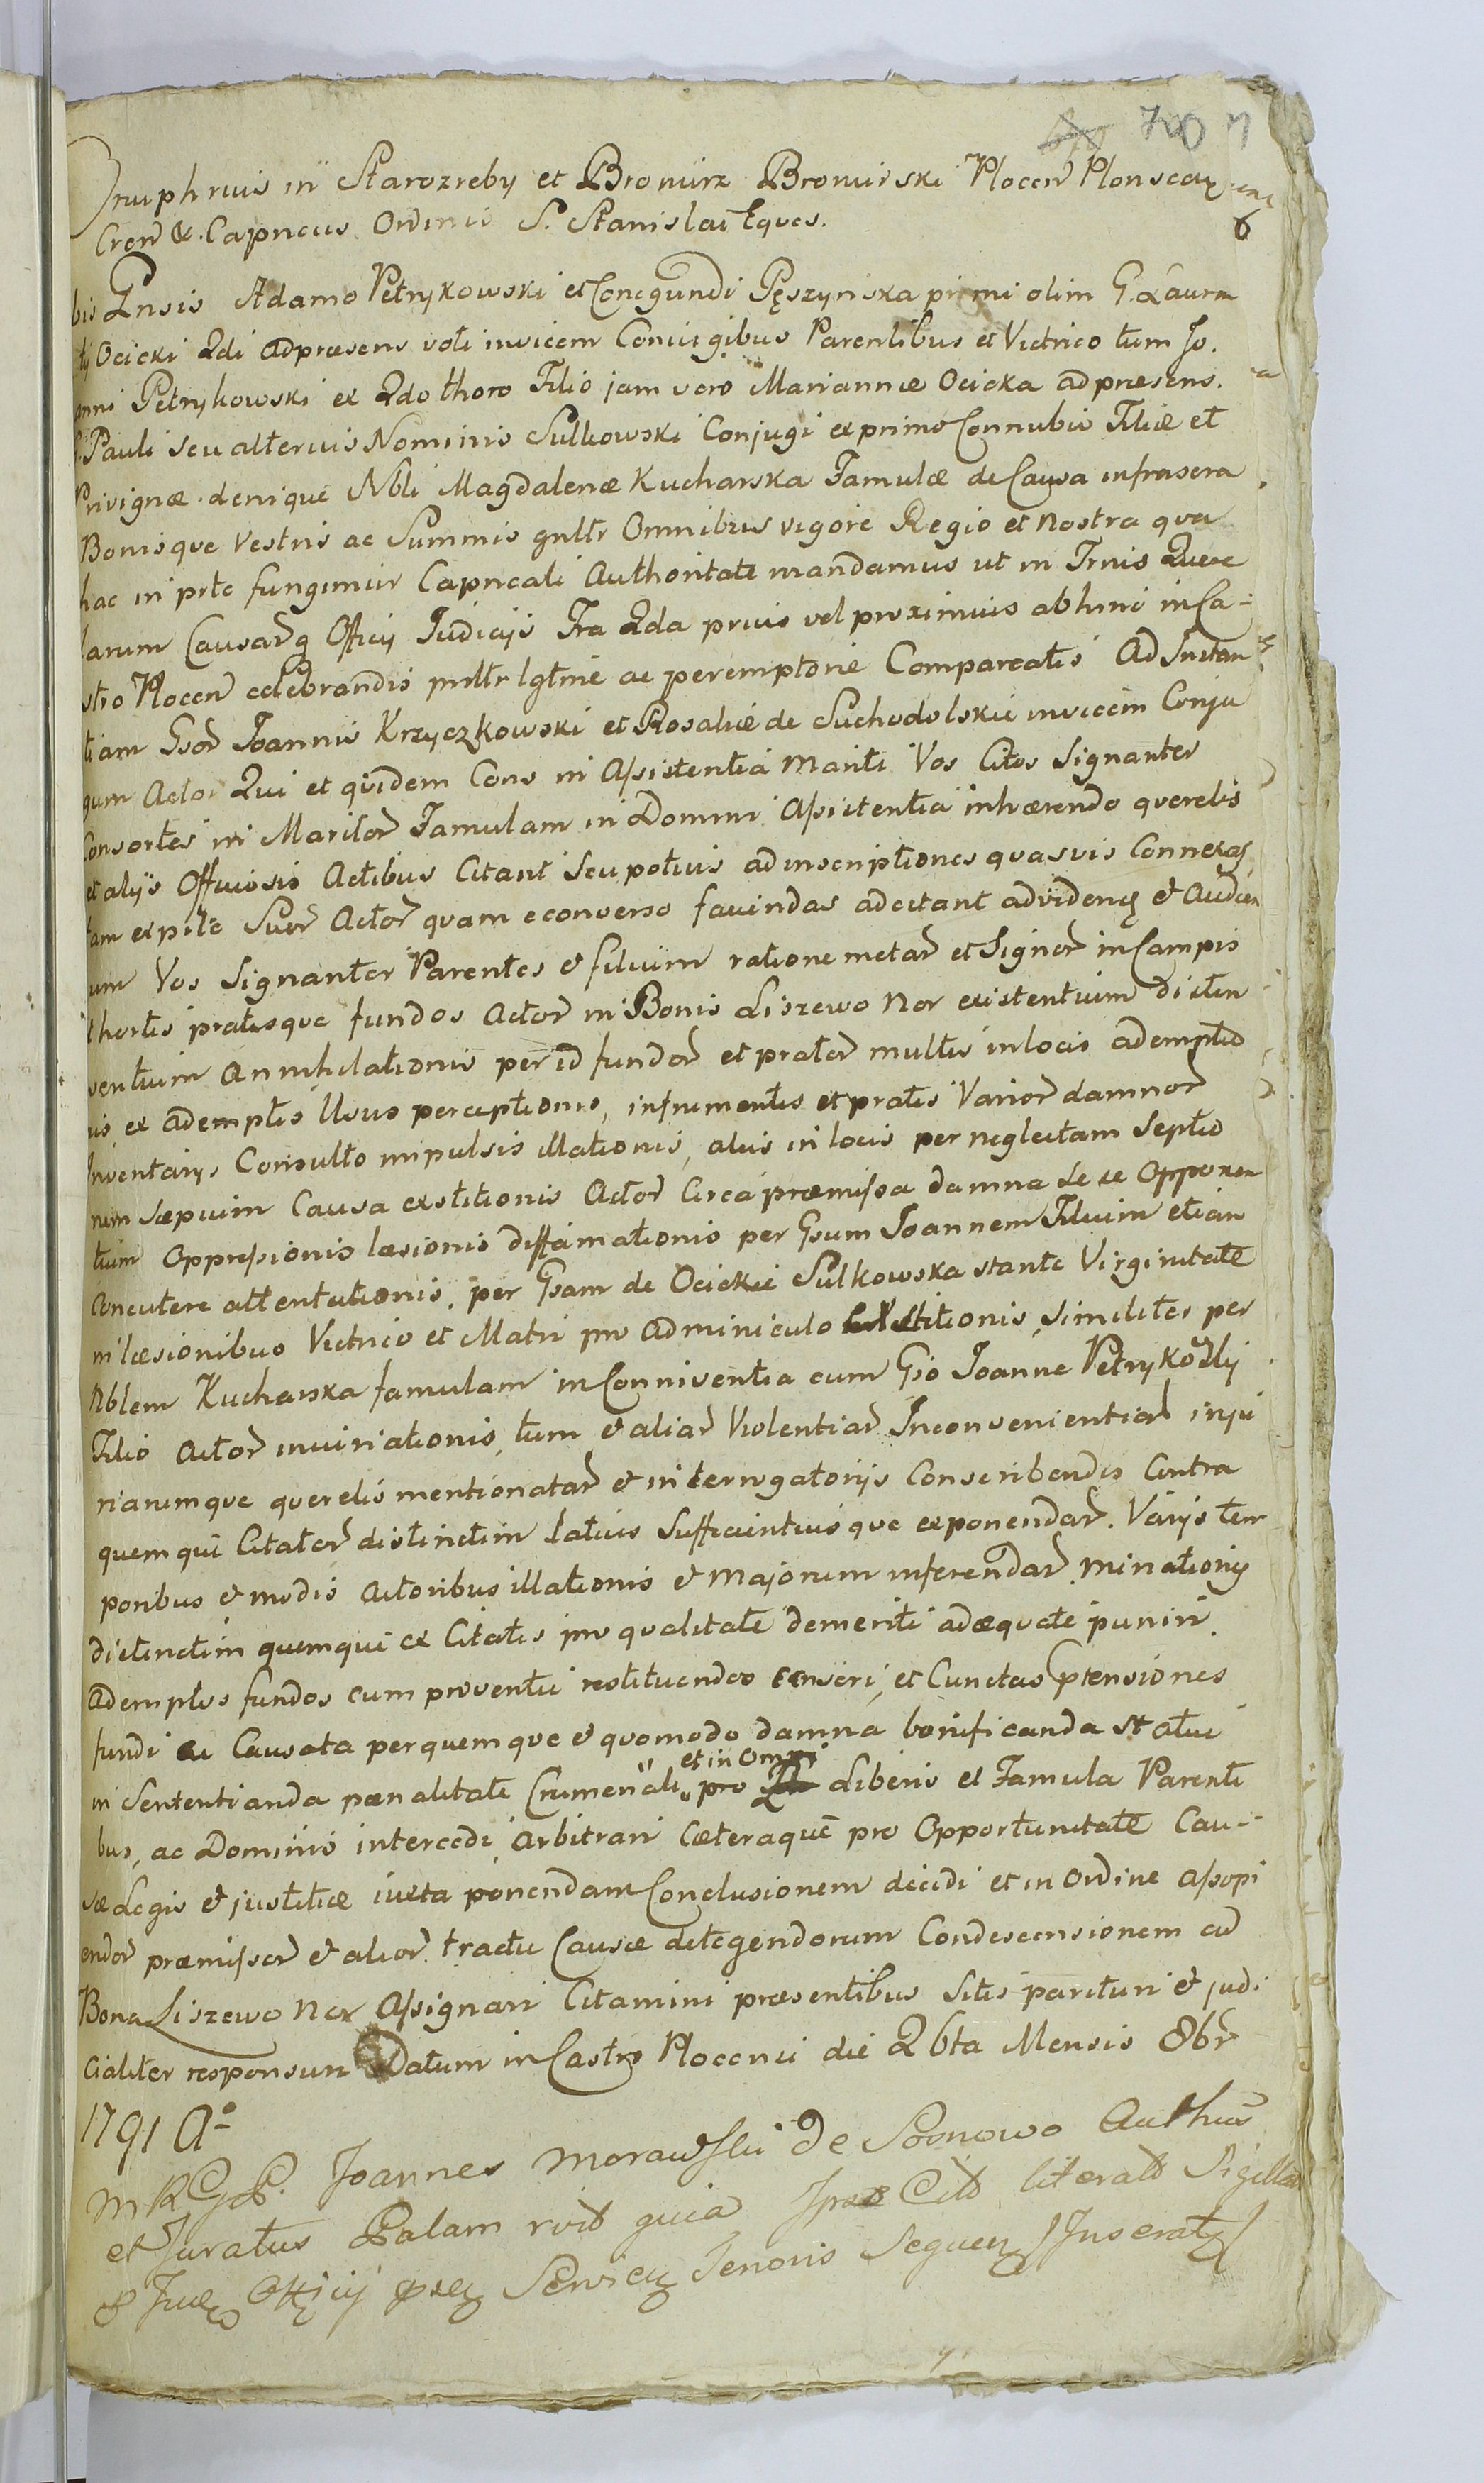 700
Onuphrius in Starozreby et Bromirz Bromirski Plocen Plonscen
6
Cren &. Capneus Ordinis S. Stanislai Eques.
bis Gnsis Adamo Petrykowski et Conegundi Pęszynska primi olim G. Lauren
ty Ocicki 2di ad præsens voti invicem Coniugibus Parentibus et Victrico tum Jo.
anni Petrykowski ex 2do thoro Filio jam vero Mariannæ Ocicka ad præsens.
Pauli seu alterius Nominis Sulkowski Conjugi ex primo Connubio Filiæ et
Privignæ denique Nbli Magdalenæ Kucharska Famulæ de Causa infrascra
Bonisque Vestris ac Summis gnltr Omnibus vigore Regio et nostra qua
hac in prte fungimur Capneali Authoritate mandamus ut in Trnis Quere
larum Causarq Officij Judicijs Fra 2da prius vel proximius abhinc in Ca-
stro Plocen celebrandis pnltr lgtme ac peremptorie Compareatis Ad Instan
tiam Gsor Joannis Krzyczkowski et Rosaliæ de Suchodolskie invicem Conju
gum Actor Qui et quidem Cons in Assistentia Mariti Vos Citos Signanter
Consortes in Maritor Famulam in Domini Assistentia inhærendo querelis
et alijs Officiosis Actibus Citant Seu potius ad inscriptiones quasvis Connexas
tam ex prte Suor Actor quam econverso faciendas adcitant ad videndū & Audien
um Vos Signanter Parentes & filium ratione metar et Signor in Campis
hortis pratisque fundos Actor in Bonis Liszewo Nor existentium disten
ventium Annihilationis per id fundor et prator multis in locis ademptio
nis ex ademptis Usus perceptionis, in frumentis et pratis Varior damnor
Inventarijs Consulto impulsis illationis, alias in locis per neglectam Septio
nem Sæpium Causa exstitionis Actor Circa præmissa damna Se se Opponen
tium Oppressionis læsionis diffamationis per Gsum Joannem Filium etiam
Concutere attentationis, per Gsam de Ocickie Sulkowska stante Virginitate
in læsionibus Victrico et Matri pro adminiculo exstitionis, similiter per
Nblem Kucharska famulam in Conniventia cum Gso Joanne Petryko
Filio Actor iniuriationis, tum & aliar Violentiar Inconvenientiar inju
riarumque querelis mentionatar & interrogatorijs Conscribendis Contra
quemqui Citator distinctim latius Sufficientiusque exponendar. Varijs tem
poribus & modis Actoribus illationis & majorum inferendar minationis
distinctim quemqui ex Citatis pro qualitate demeriti adæquate puniri
ademptos fundos cum proventu restituendos censeri, et Cunctas Ptensiones
fundi ac Causata per quemque & quomodo damna bonificanda Statui
et in Ompi
in Sententianda pænalitate Crimenali pro Liberis et Famula Parenti
bus, ac Dominis intercedi, arbitrari Cæteraque pro Opportunitate Cau-
sæ Legis & justitiæ iuxta ponendam Conclusionem decidi et in Ordine assopi
endor præmissor & alior tractu Causæ detegendorum Condescensionem ad
Bona Liszewo Nor Assignari Citamini præsentibus Sitis parituri & judi
cialiter responsuri Datum in Castro Plocensi die 26ta Mensis 8br
1791 Ao
MRGP. Joannes Morawski de Sosnowo Authus
et Juratus Palam rvit quia Ipse Citt literatt Sigillatt
& Officij Tenoris Sequen (Inserat)